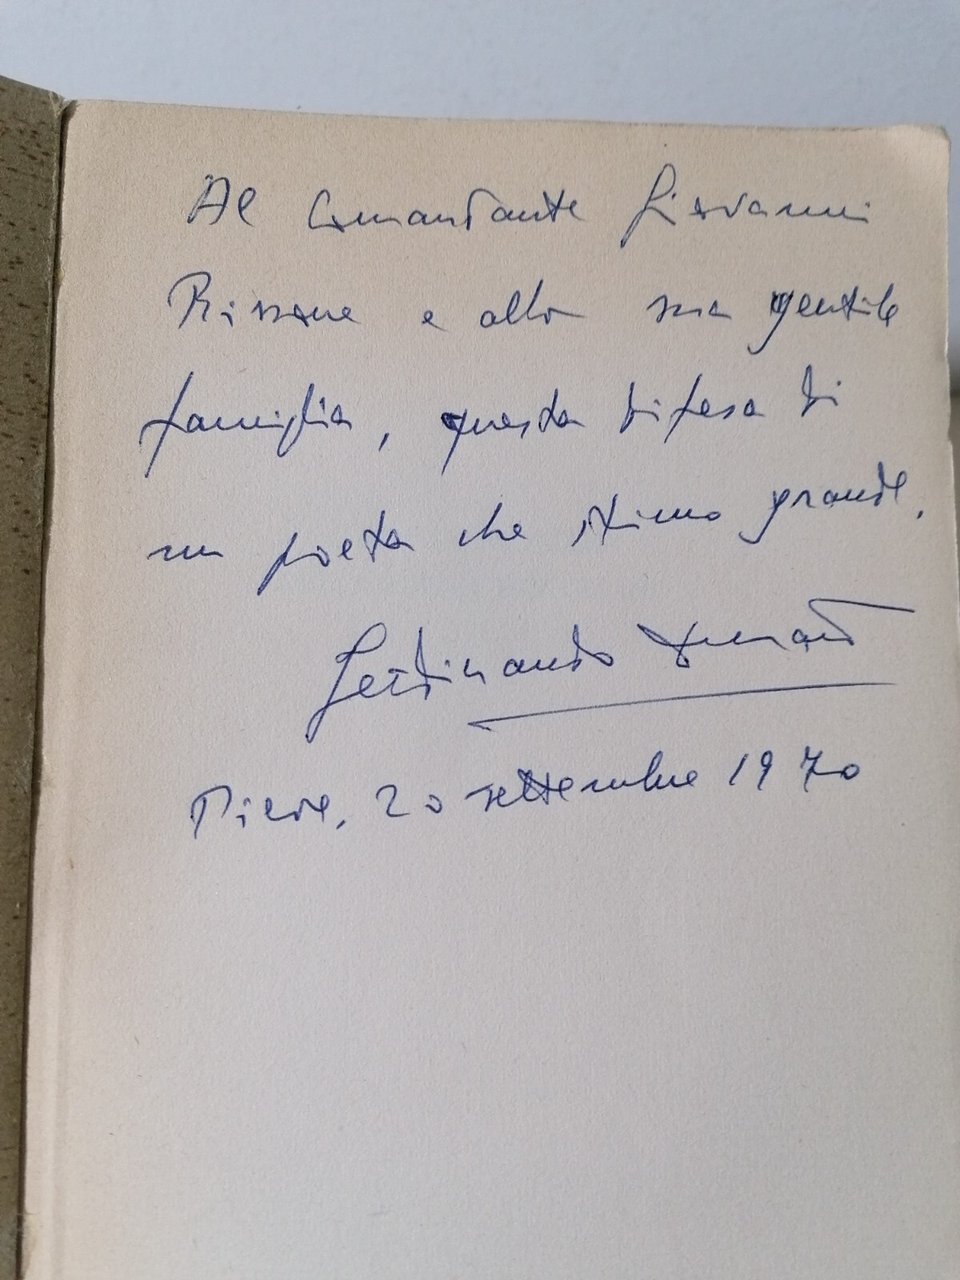 Al Comandante Giovanni
e alla sua gentile
famiglia, questa difesa di
un poeta che stimo grande.
Ferdinando
Pieve, 20 settembre 1970